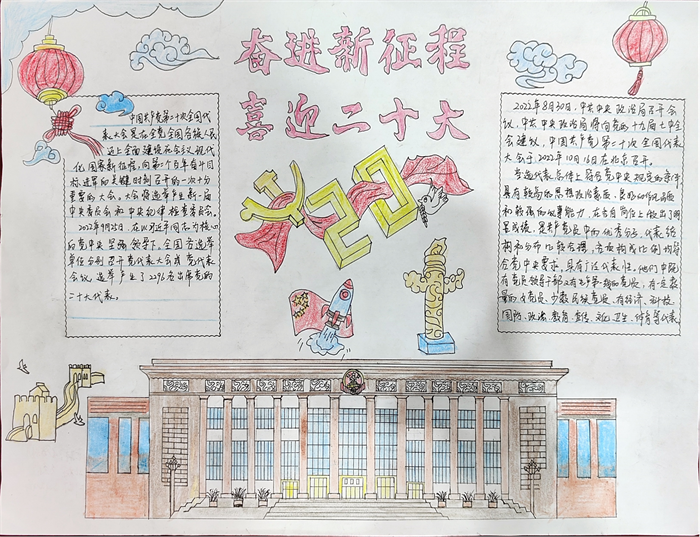 奋进新征程
喜迎二十大
中国共产党第二十次全国代
表大会是在全党全国各族人民
迈上全面建设社会主义现代
化国家新征程，向第二个百年奋斗目
标进军的关键时刻召开的一次十分
重要的大会。大会将选举产生新一届
中央委员会和中央纪律检查委员会。
2022年9月25日，在以习近平同志为核心
的党中央坚强领导下，全国各选举
单位分别召开党代表大会或党代表
会议，选举产生了2296名出席党的
二十大代表。
2022年8月30日，中共中央政治局召开会
议，中共中央政治局将向党的十九届七中全
会建议，中国共产党第二十次全国代表
大会于2022年10月16日在北京召开。
当选代表总体上符合党中央规定的条件
具有较高的思想政治素质，良好的作风品格
和较强的议事能力，在各自岗位上做出了明
显成绩，是共产党员中的优秀分子，代表结
构和分布比较合理，各项构成比例均符
合党中央要求，具有广泛代表性，他们中既
有党员领导干部又有生产第一线的党员，有一定数
量的女党员、少数民族党员，有经济、科技、
国防、政法、教育、宣传、文化、卫生、体育等代表。
20